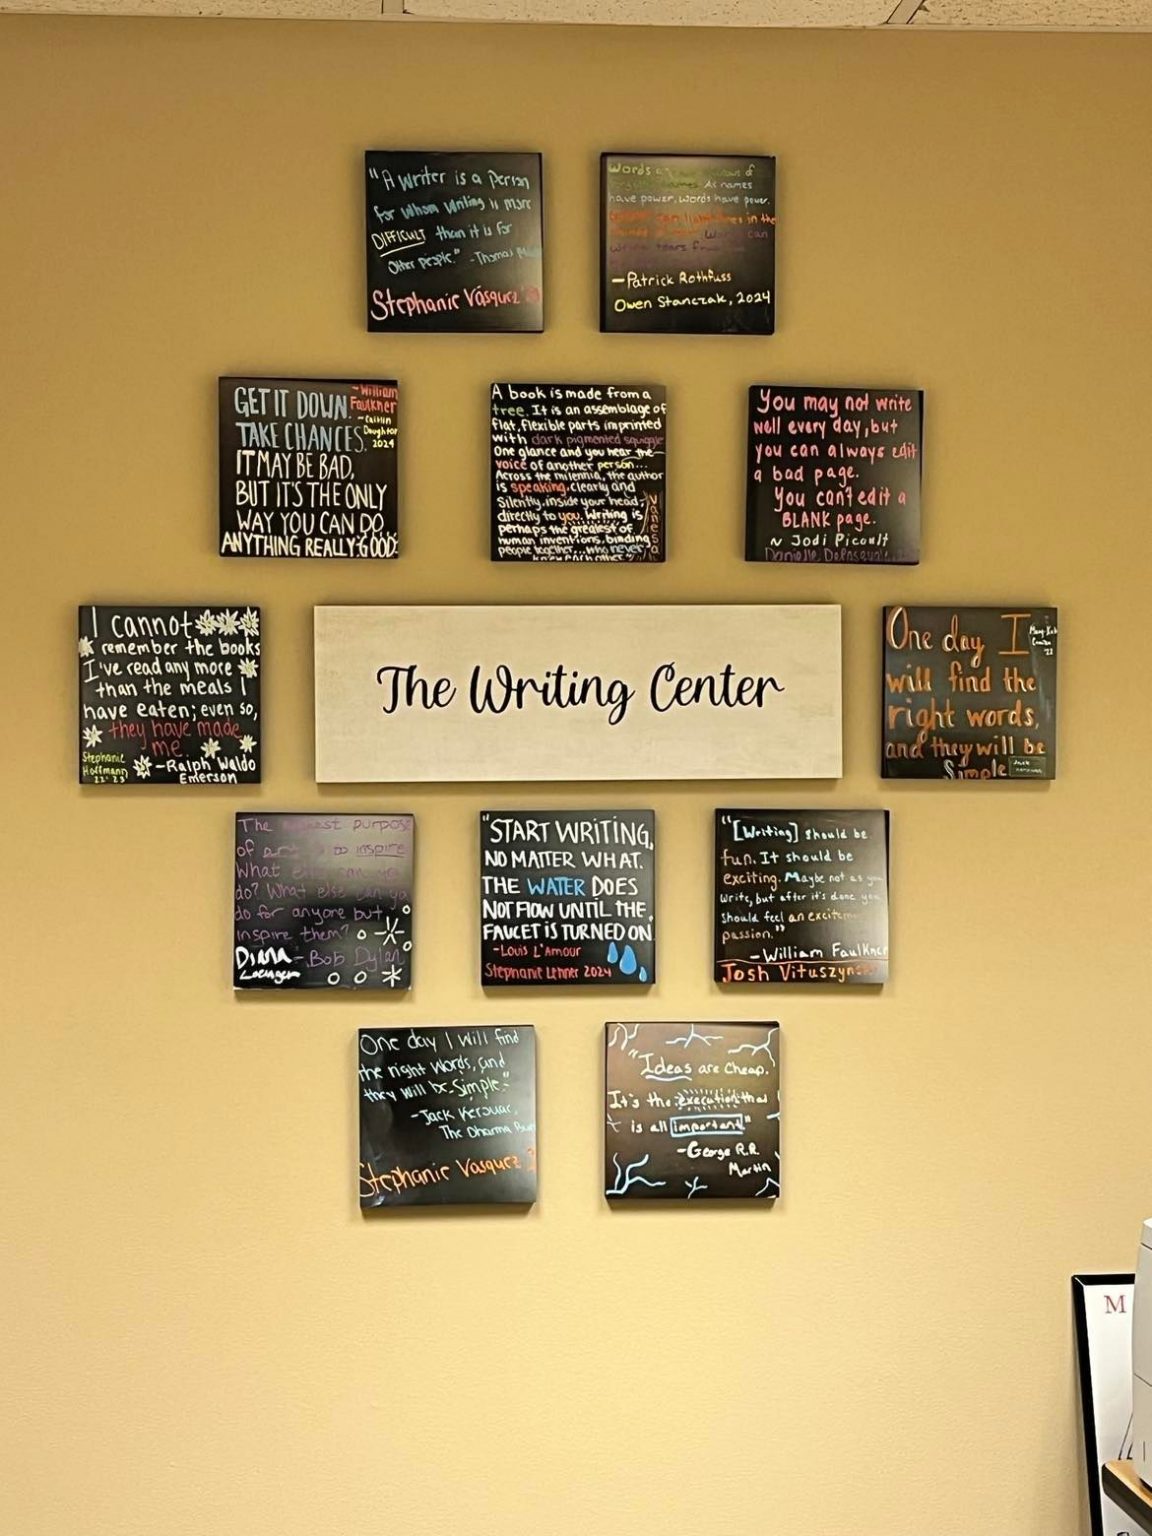 "A writer is a person
for whom writing is more
DIFFICULT than it is for
other people." -Thomas
Stephanie Vásquez
Words
As names
have power, words have power.
can light fires in the
can
tears
-Patrick Rothfuss
Owen Stanczak, 2024
GET IT DOWN.
TAKE CHANCES.
IT MAY BE BAD,
BUT IT'S THE ONLY
WAY YOU CAN DO
ANYTHING REALLY GOOD
~William
Faulkner
-Caitlin
Daughton
2024
A book is made from a
tree. It is an assemblage of
flat, flexible parts imprinted
with dark pigmented squiggle
One glance and you hear the
voice of another person...
Across the millennia, the author
is speaking, clearly and
silently, inside your head,
directly to you. Writing is
perhaps the greatest of
human inventions, binding
people together... who never
knew each other
You may not write
well every day, but
you can always edit
a bad page.
You can't edit a
BLANK page.
~ Jodi Picoult
Danielle
I cannot
remember the books
I've read any more
than the meals I
have eaten; even so,
they have made
me
-Ralph Waldo
Emerson
Stephanie
Hoffmann
22' 23
The Writing Center
One day I
will find the
right words,
and they will be
Simple
The highest purpose
of art is to inspire
What else can you
do? What else can you
do for anyone but
inspire them?
-Bob Dylan
Diana
"START WRITING,
NO MATTER WHAT.
THE WATER DOES
NOT FLOW UNTIL THE
FAUCET IS TURNED ON
-Louis L'Amour
Stephanie Lehner 2024
"[Writing] should be
fun. It should be
exciting. Maybe not as you
write, but after it's done you
should feel an excitement
passion."
-William Faulkner
Josh
One day I will find
the right words, and
they will be simple."
-Jack Kerouac,
The Dharma
Stephanie Vasquez
"Ideas are cheap.
It's the execution that
is all important"
-George R.R.
Martin
M